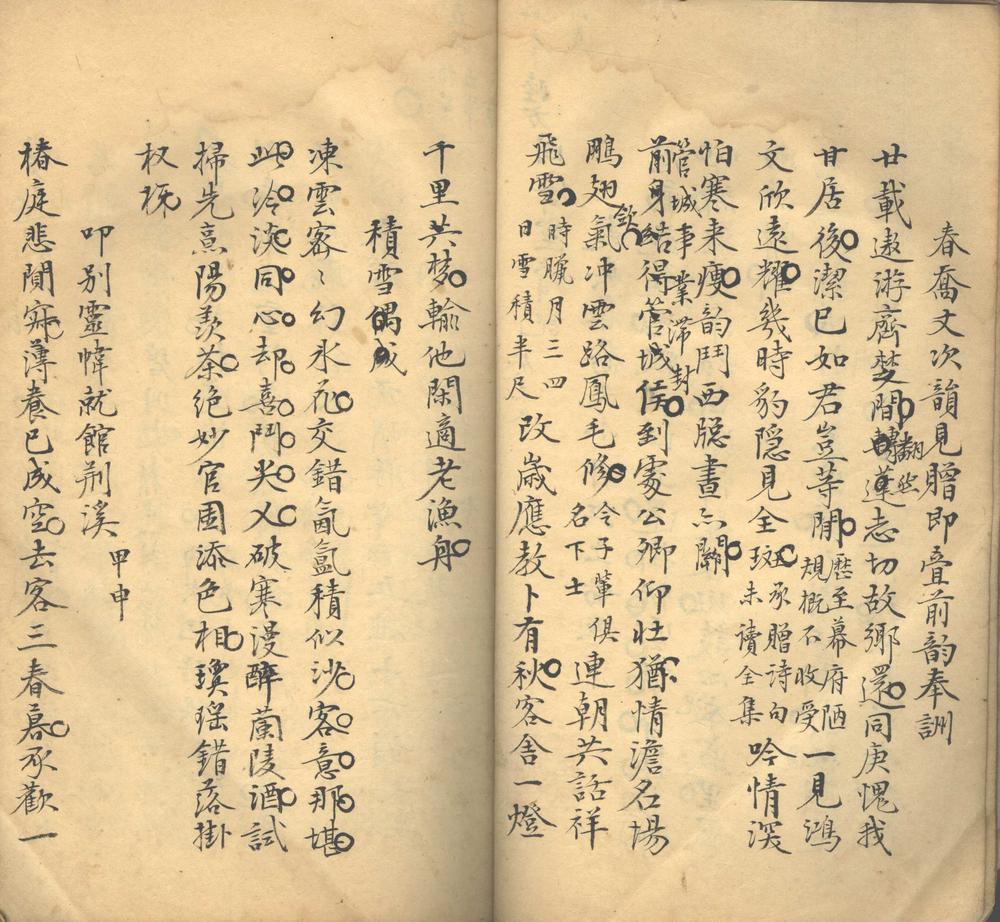 春喬丈次韻見贈即疊前韵奉詶
廿載遨游齊楚間翻然蓴志切故鄉還同庚愧我
廿居後潔已如君豈等閒歷至幕府陋規概不收受一見鴻
文欣遠耀幾時豹隱見全斑承贈诗句未讀全集吟情深
怕寒来瘦韵鬥西牕晝亦關
管城事業滯封
前身結得管城侯到處公卿仰壮猶情澹名場
欽
鵬翅氣冲雲路鳳毛修令子輩俱名下士連朝共話祥
飛雪時臘月三四日雪積半尺改歲應教卜有秋客舎一燈
千里共梦輸他閑適老漁舟
積雪偶成
凍雲密〻幻氷花交錯氤氲積似沙客意那堪
此冷淡同心却喜鬥尖乂破寒漫醉蘭陵酒試
掃先烹陽羨茶絶妙官園添色相瓊瑶錯落掛
杈枒
叩别靈幃就館荆溪甲申
椿庭悲閴寂薄養已成空去客三春暮承歡一